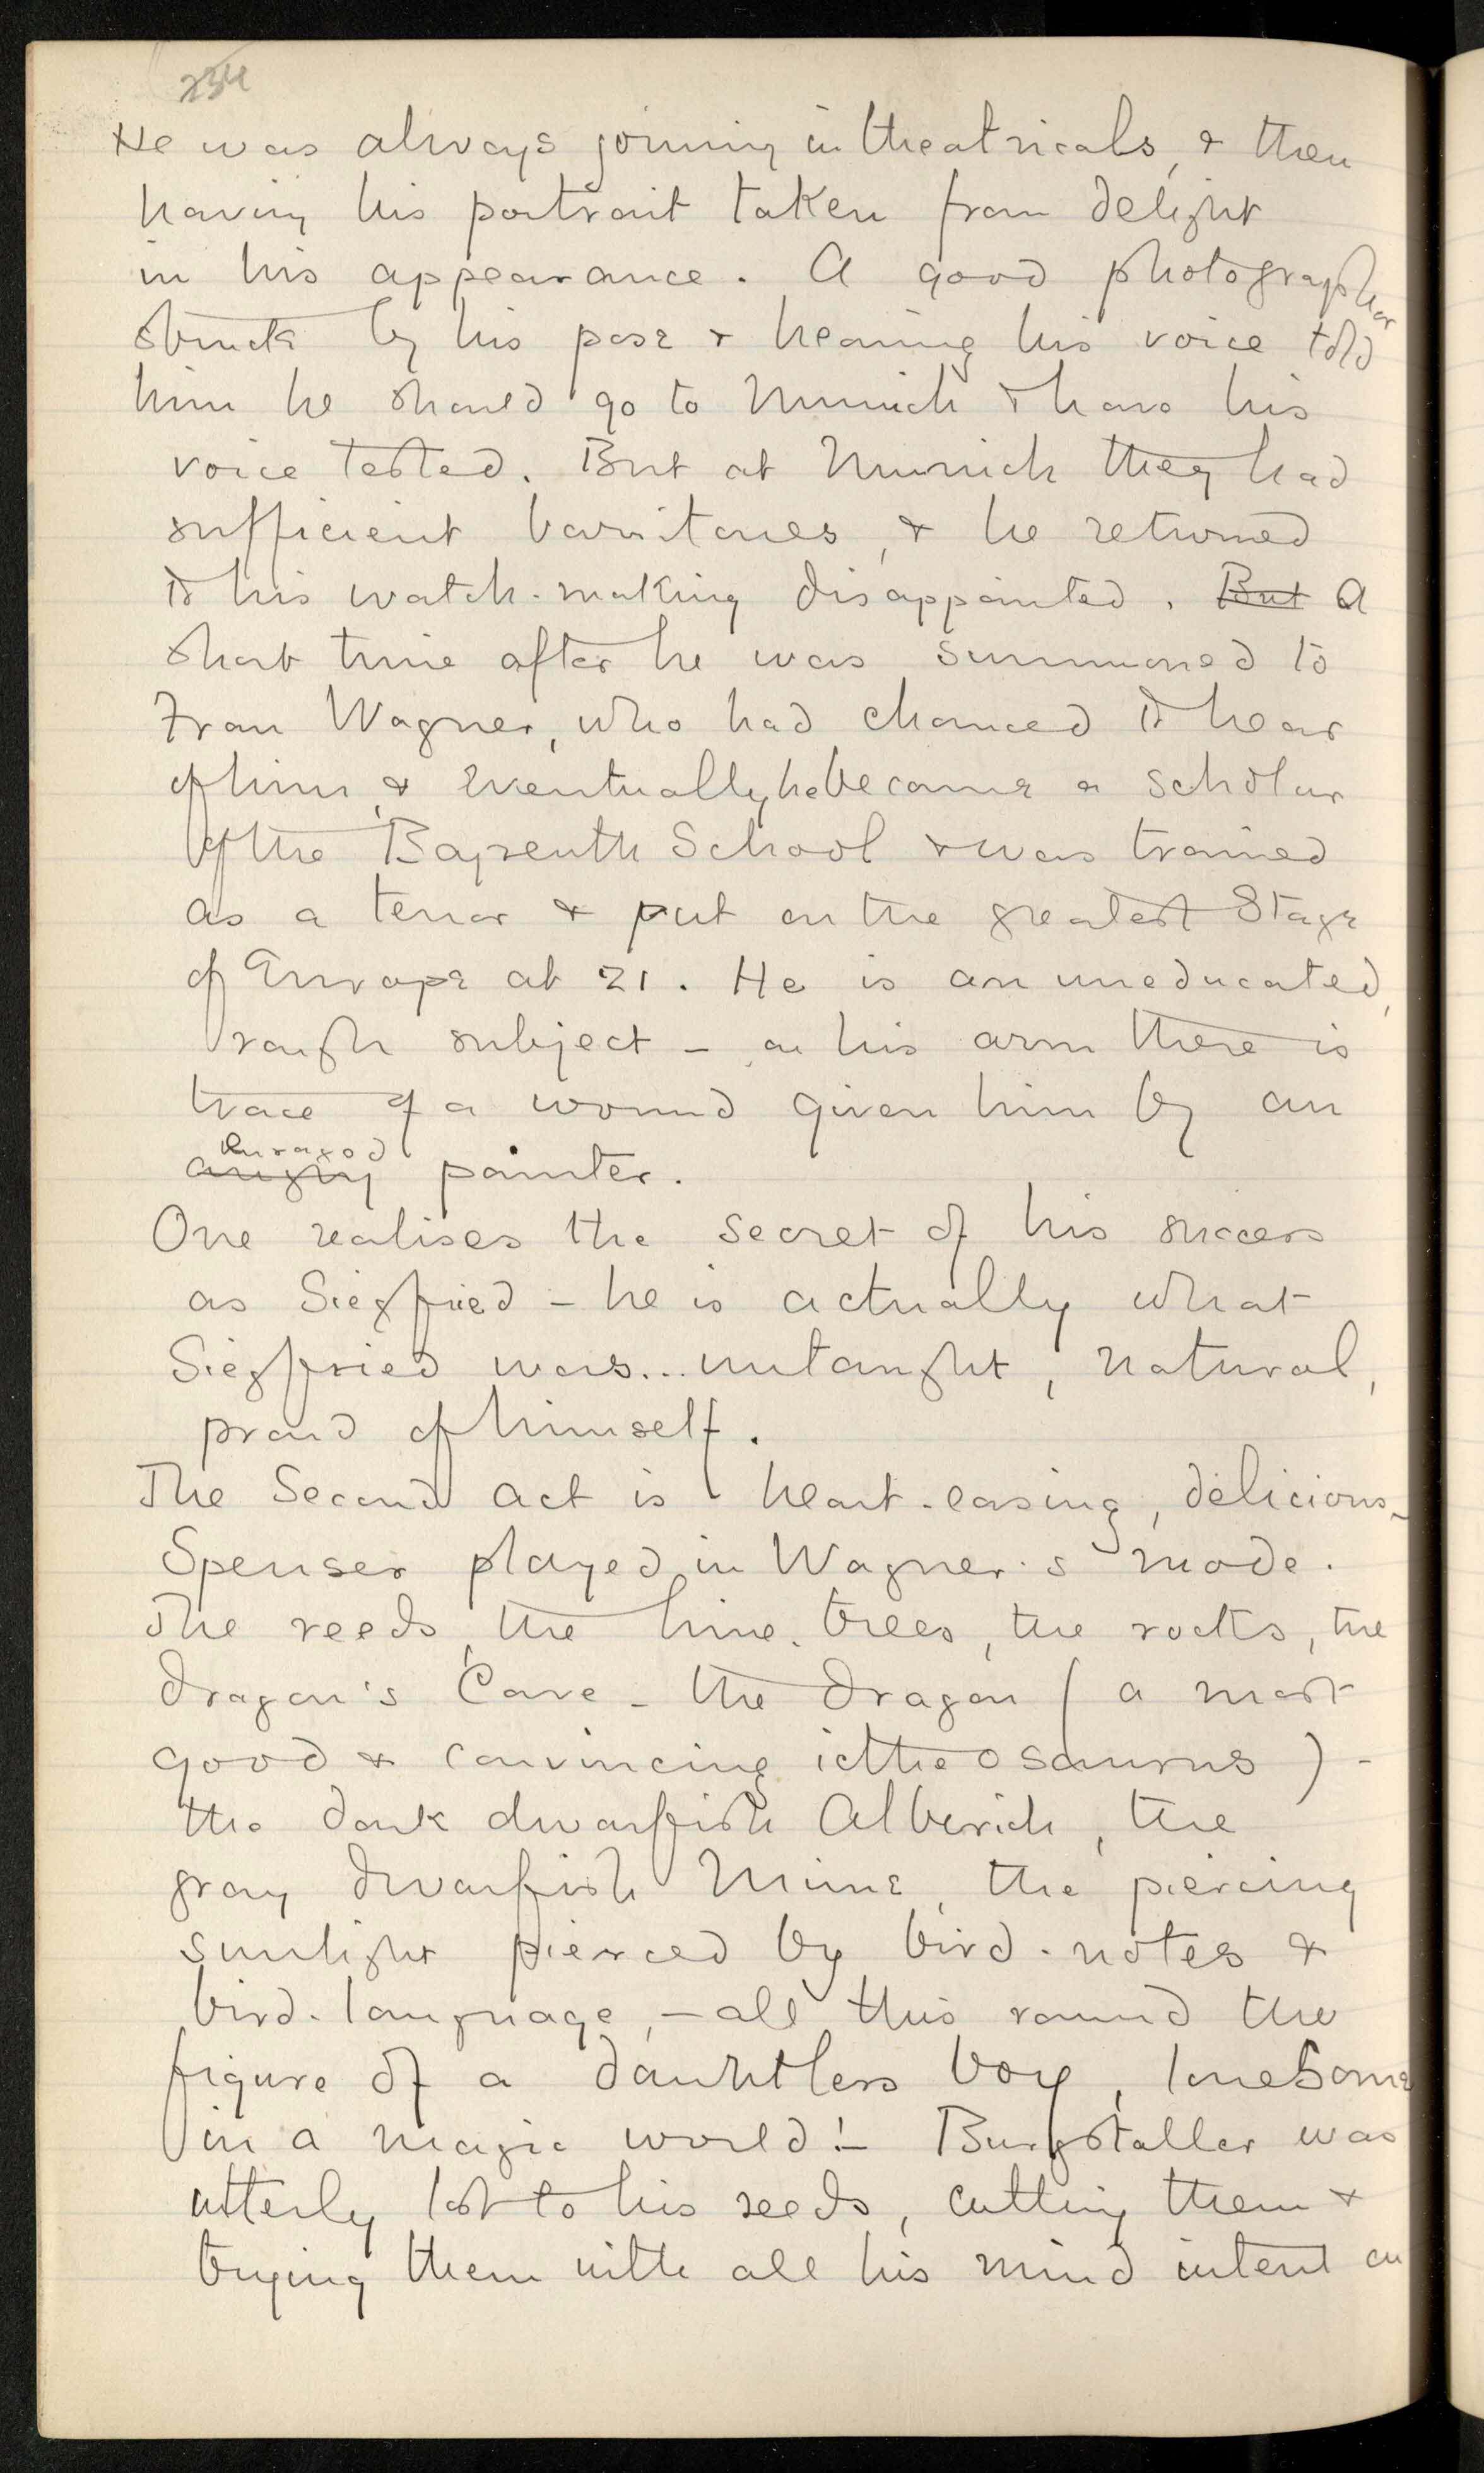 234
He was always joining in theatricals, & then
having his portrait taken from delight
in his appearance. A good photographer
struck by his pose & hearing his voice told
him he should go to Munich & have his
voice tested. But at Munich they had
sufficient baritones, & he returned
to his watch-making disappointed. But A
short time after he was summoned to
Frau Wagner, who had chanced to hear
of him, & eventually he became a scholar
of the Bayreuth School & was trained
as a tenor & put on the greatest Stage
of Europe at 21. He is an uneducated,
rough subject – on his arm there is
trace of a wound given him by an
enraged
angry painter.
One realises the secret of his success
as Siegfried – he is actually what
Siegfried was... untaught, natural,
proud of himself.
The Second Act is heart-easing, delicious –
Spenser played in Wagner's mode.
The reeds, the lime-trees, the rocks, the
Dragon's Cave – the Dragon (a most
good & convincing ictheosaurus) –
the dark dwarfish Alberich, the
gray dwarfish Mime, the piercing
sunlight pierced by bird-notes &
bird-language, – all this round the
figure of a dauntless boy, lonesome
in a magic world! – Burgstaller was
utterly lost to his reeds, cutting them &
trying them with all his mind intent on